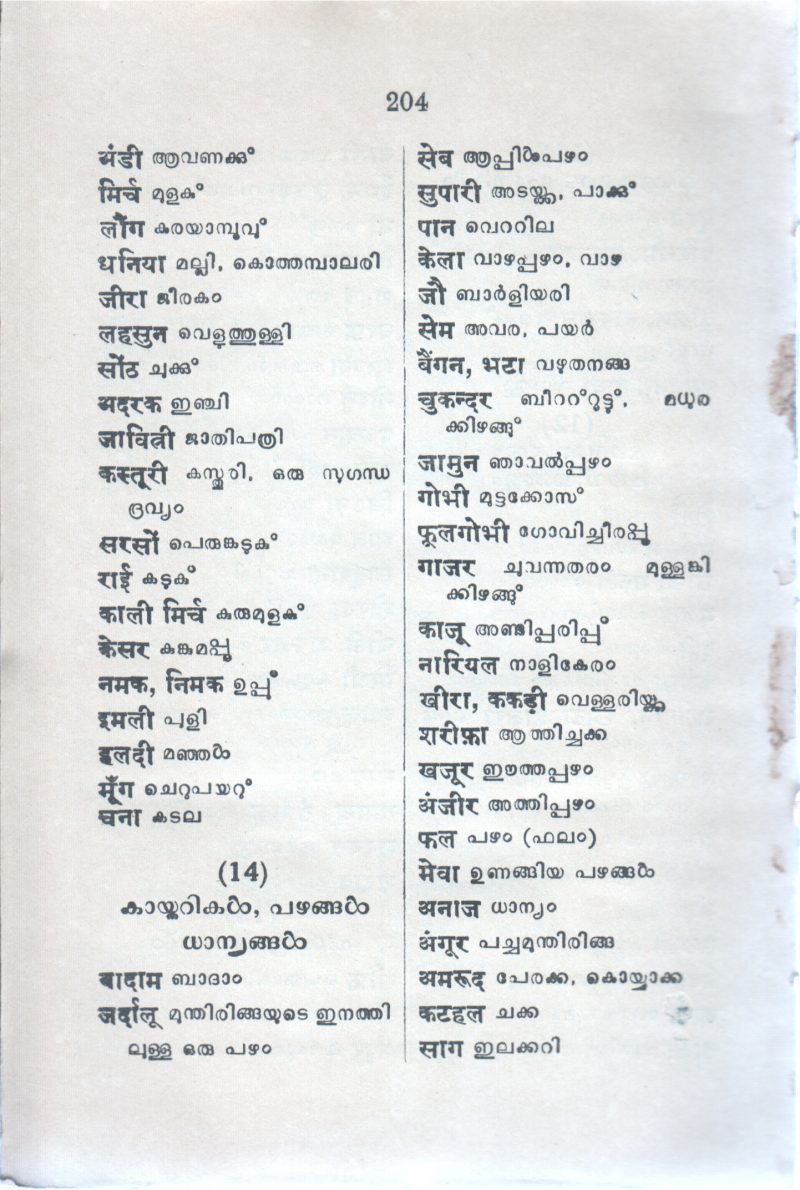 204
अंडी ആവണക്കു്
मिर्च മുളകു്
लौंग കരയാമ്പൂവു്
धनिया മല്ലി, കൊത്തമ്പാലരി
जीरा ജീരകം
लहसुन വെളുത്തുള്ളി
सोंठ ചുക്കു്
अदरक ഇഞ്ചി
जावित्री ജാതിപത്രി
कस्तूरी കസ്തൂരി, ഒരു സുഗന്ധ
ദ്രവ്യം
सरसों പെരുങ്കടുകു്
राई കടുകു്
काली मिर्च കുരുമുളകു്
केसर കുങ്കുമപ്പൂ
नमक, निमक ഉപ്പു്
इमली പുളി
हलदी മഞ്ഞൾ
मूँग ചെറുപയറു്
चना കടല
(14)
കായ്കറികൾ, പഴങ്ങൾ
ധാന്യങ്ങൾ
बादाम ബാദാം
जर्दालू മുന്തിരിങ്ങയുടെ ഇനത്തി
ലുള്ള ഒരു പഴം
सेब ആപ്പിൾപഴം
सुपारी അടയ്ക്ക, പാക്കു്
पान വെററില
केला വാഴപ്പഴം, വാഴ
जौ ബാർളിയരി
सेम അവര, പയർ
बैंगन, भटा വഴുതനങ്ങ
चुकन्दर ബീററ്റൂട്ടു്, മധുര
ക്കിഴങ്ങു്
जामुन ഞാവൽപ്പഴം
गोभी മുട്ടക്കോസ്
फूलगोभी ഗോവിച്ചീരപ്പൂ
गाजर ചുവന്നതരം മുള്ളങ്കി
ക്കിഴങ്ങു്
काजू അണ്ടിപ്പരിപ്പു്
नारियल നാളികേരം
खीरा, ककड़ी വെള്ളരിയ്ക്ക
शरीफ़ा ആത്തിച്ചക്ക
खजूर ഈത്തപ്പഴം
अंजीर അത്തിപ്പഴം
फल പഴം (ഫലം)
मेवा ഉണങ്ങിയ പഴങ്ങൾ
अनाज ധാന്യം
अंगूर പച്ചമുന്തിരിങ്ങ
अमरूद പേരക്ക, കൊയ്യാക്ക
कटहल ചക്ക
साग ഇലക്കറി